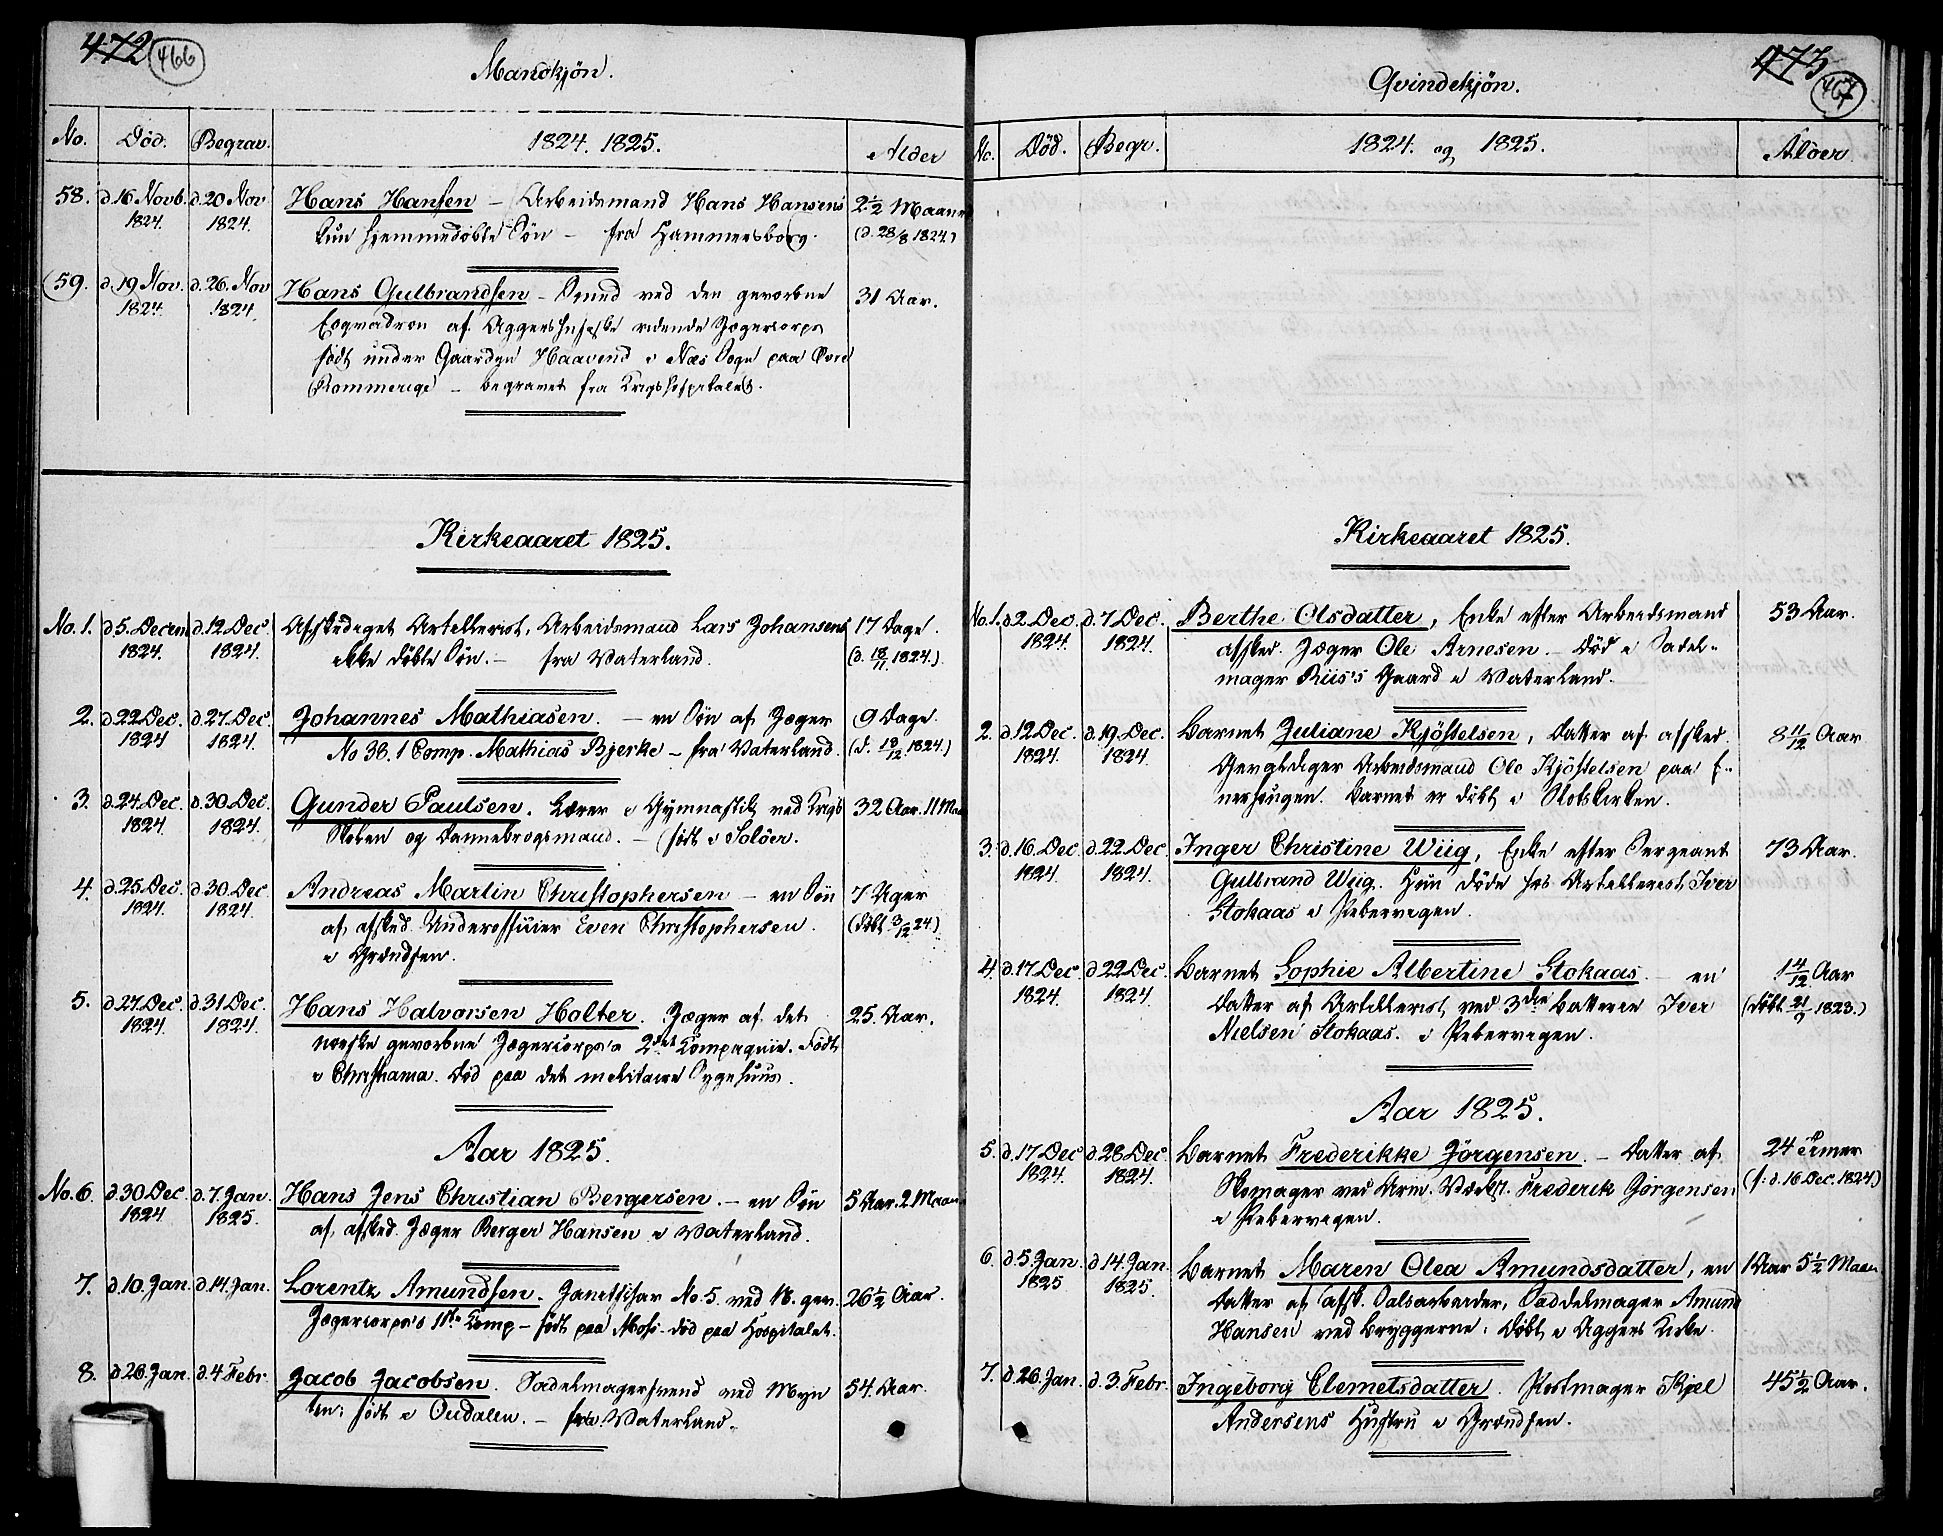 472 466
Mandkjøn.
No. Død. Begrav. 1824. 1825. Alder
58. d.16 Novb. d.20 Nov Hans Hansen – Arbeidsmand Hans Hansens 2½ Maaned
1824. 1824. kun hjemmedøbte Søn – fra Hammersborg. (d. 28/8 1824.)
59. d.19 Nov. d.26. Nov Hans Gulbrandsen – Smed ved den gevorbne 31 Aar.
1824. 1824. Esqvadron af Aggershusiske ridende Jægercorps
født under Gaarden Haavend i Næs Sogn paa Øvre
Rommerige – begravet fra Krigshospitalet.
Kirkeaaret 1825.
No. 1. d5. Decem d.12 Dec. Afskediget Artillerist, Arbeidsmand Lars Johansens 17 Dage.
1824. 1824. ikke døbte Søn. – fra Vaterland. (d. 18/11 1824.)
2. d22 Dec. d.27. Dec. Johannes Mathiasen. – en Søn af Jæger 9 Dage.
1824 1824. No 38. 1 Comp. Mathias Bjerke – fra Vaterland. (d. 13/12 1824.)
3. d.24. Dec. d.30. Dec. Gunder Paulsen. Lærer i Gymnastik ved Krigs 32 Aar. 11 Maa
1824. 1824. Skolen og Dannebrogsmand. – født i Soløer.
4. d.25. Dec. d.30. Dec. Andreas Martin Christophersen – en Søn 7 Uger
1824. 1824. af afsked. Underofficier Even Christophersen. (døbt 3/12 24.)
i Grændsen.
5. d.27. Dec. d.31 Dec. Hans Halvorsen Holter. Jæger af det 25. Aar.
1824. 1824. norske gevorbne Jægercorps's 2det Compagnie. Født
i Christiania. Død paa det militaire Sygehuus.
Aar 1825.
No. 6. d.30. Dec. d.7. Jan. Hans Jens Christian Bergersen. – en Søn 5 Aar. 2 Maan
1824 1825. af afsked. Jæger Berger Hansen i Vaterland.
7. d.10. Jan. d.14. Jan. Lorentz Amundsen. Janitshar No. 5. ved N. gev. 26½ Aar.
Jægercorps's 1ste Comp – født paa Moss. død paa Hospitalet.
8. d.26. Jan. d.4 Febr. Jacob Jacobsen. Sadelmagersvend ved Myn 54. Aar.
ten; født i Oudalen. – fra Vaterland.
473 467
Qvindekjøn.
No. Død. Begr. 1824. og 1825. Alder
Kirkeaaret 1825.
No.1. d2. Dec. d.7 Dec. Berthe Olsdatter, Enke efter Arbeidsmand 53 Aar.
1824. 1824. afsked. Jæger Ole Arnesen. – død i Sadel-
mager Riis's Gaard i Vaterland.
2. d.12 Dec. d.19. Dec. Barnet Juliane Kjøstelsen, datter af afsked. 8 11/12 Aar
1824. 1824. Arbeidsmand Ole Kjøstelsen paa E-
nerhougen. Barnet er døbt i Slotskirken.
3. d.16. Dec. d.22. Dec. Inger Christine Wiig, Enke efter Sergeant 73 Aar.
1824. 1824. Gulbrand Wiig. Hun døde hos Artillerist Iver
Stokaas i Pebervigen.
4. d.17. Dec. d 22 Dec. Barnet Sophie Albertine Stokaas – en 1 4/12 Aar
1824. 1824. datter af Artillerist ved 3die Batterie Iver (døbt 21/9 1823.)
Nielsen Stokaas. i Pebervigen.
Aar 1825.
5. d.17 Dec d.28 Dec. Barnet Frederikke Jørgensen. – datter af 24 Timer
1824. 1824. Skomager ved Arm. Værkst. Frederik Jørgensen (f: d.16 Dec. 1824.)
i Pebervigen.
6. d.5. Jan. d 14. Jan. Barnet Maren Olea Amundsdatter, en 1 Aar 5½ Maan
1825 1825. datter af afsk. Saddelmager Amund
Hansen ved Bryggerne. døbt i Aggers Kirke.
7. d.26. Jan. d. 3. Febr. Ingeborg Clemetsdatter. Kjel 45½ Aar.
Andersens Hustru i Grændsen.